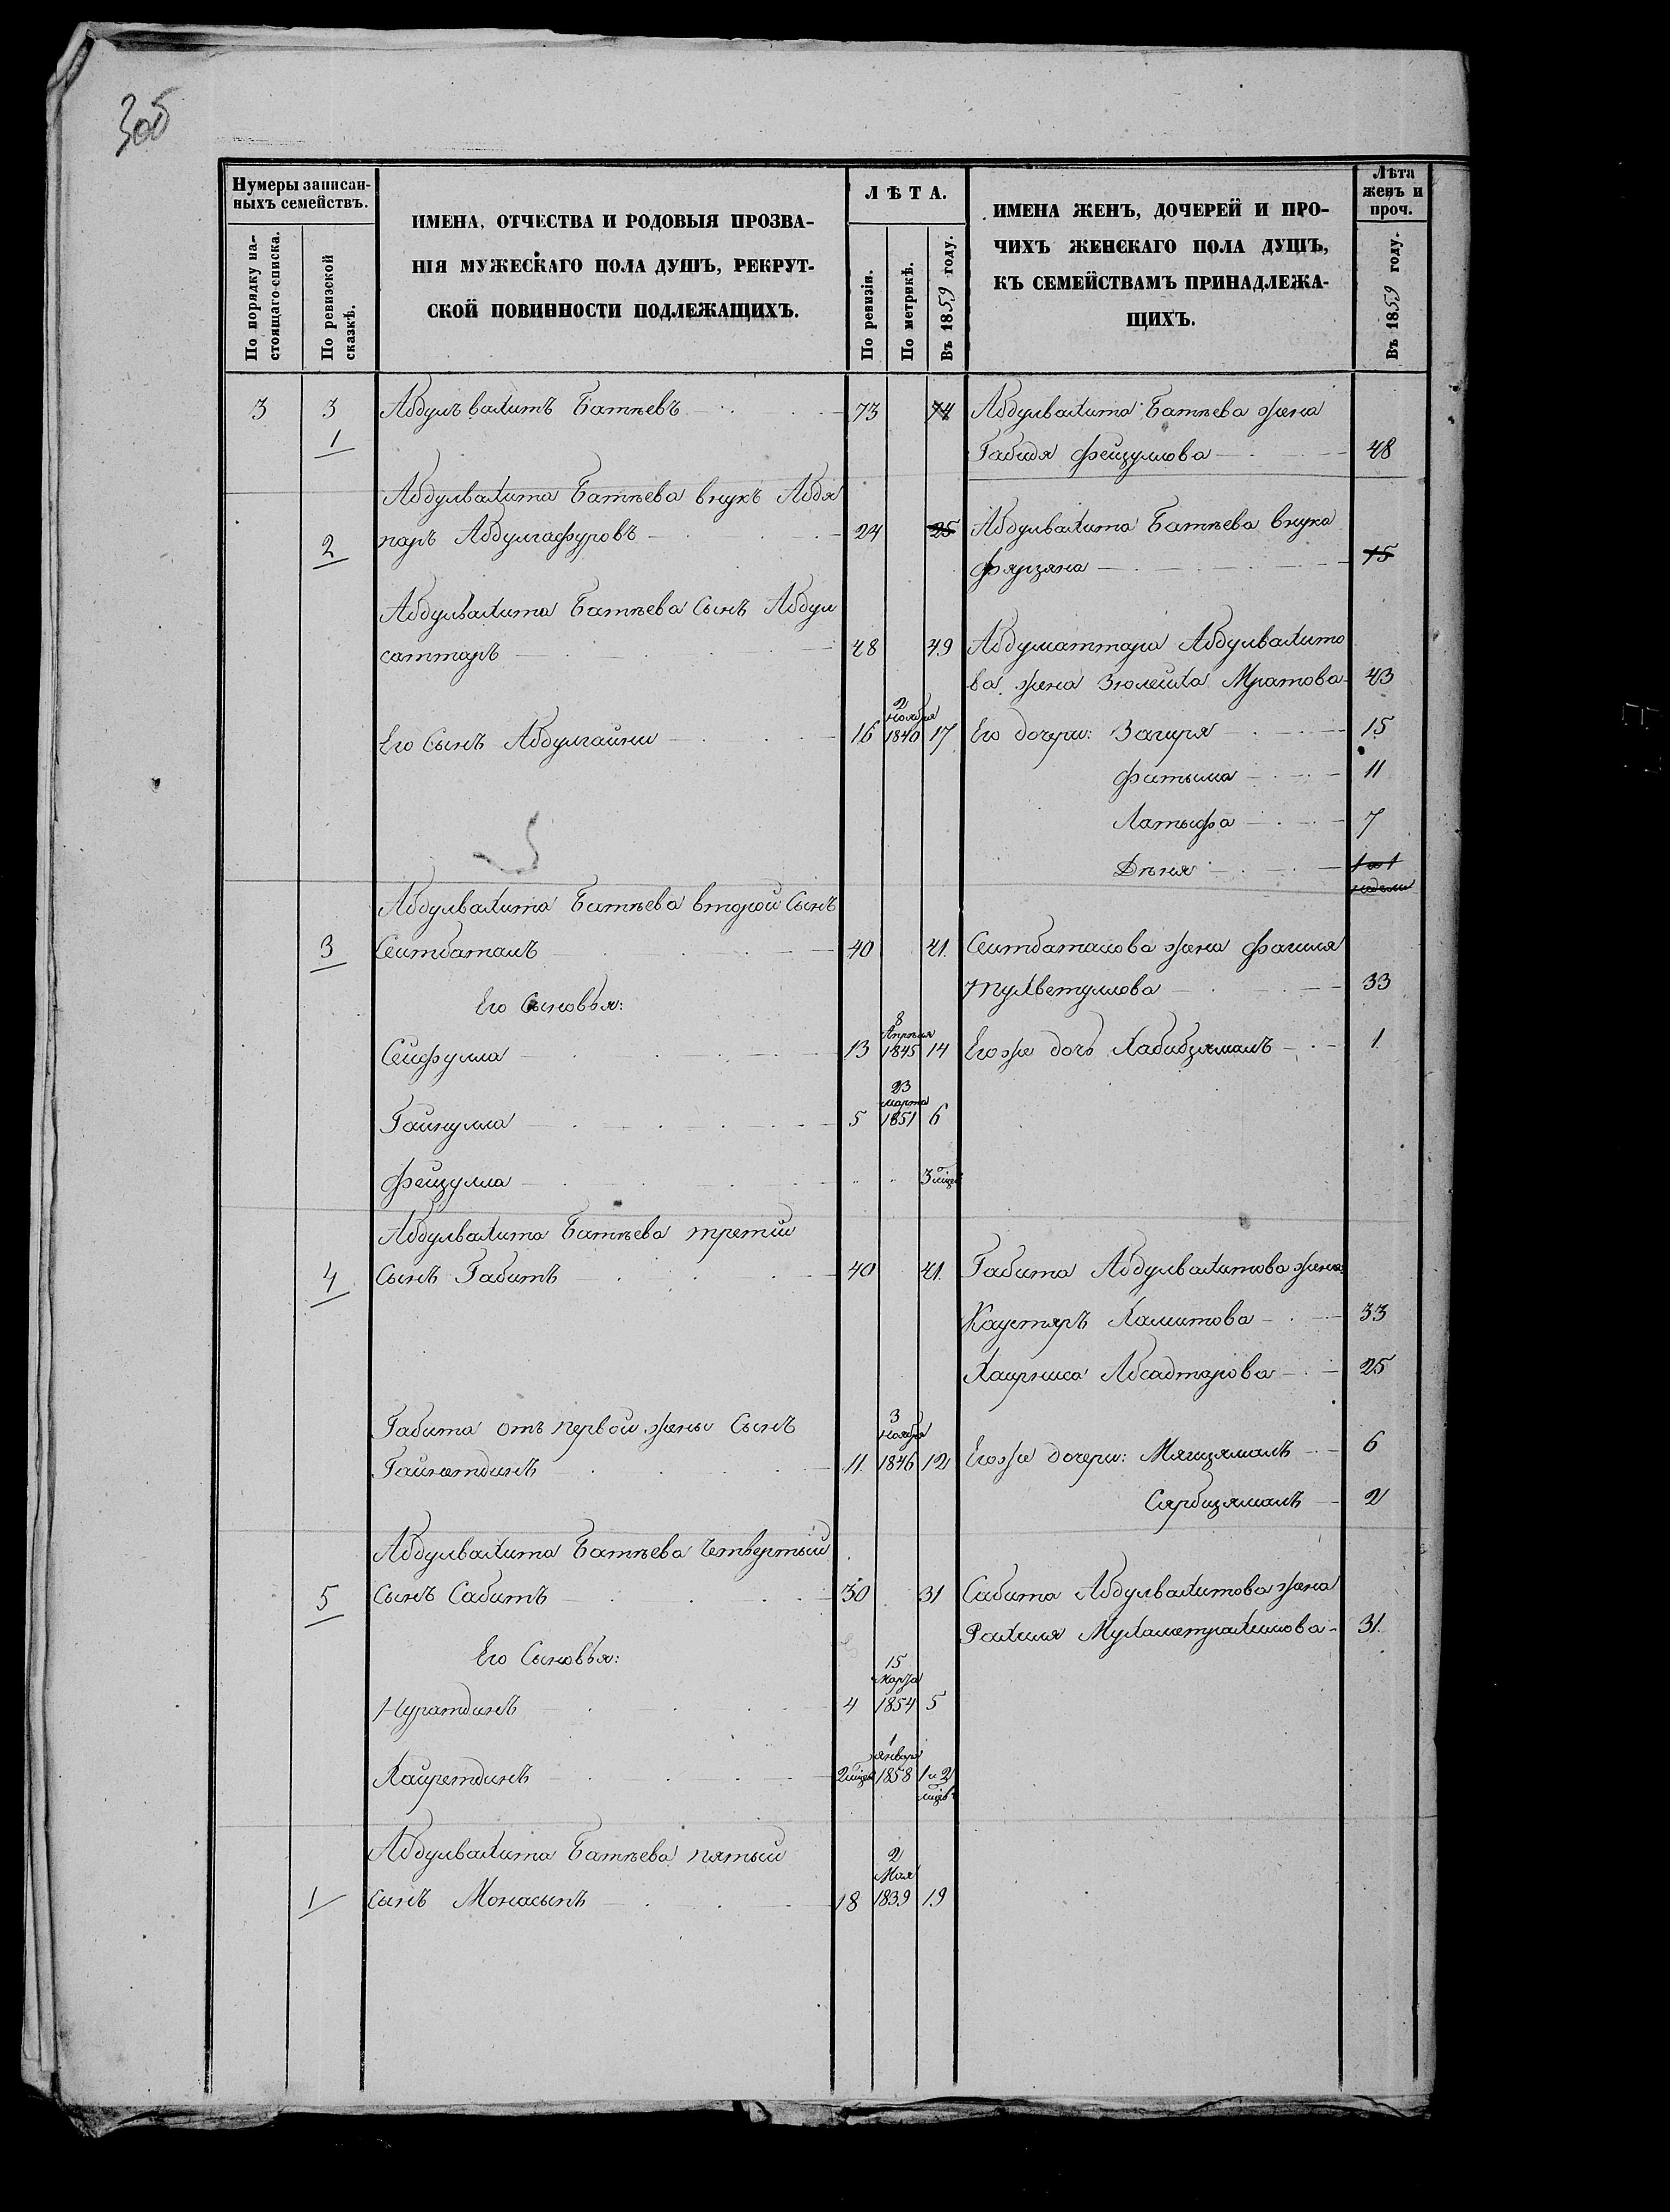 305
Нумеры записан-
ныхъ семействъ.
По порядку на-
стоящаго списка.
По ревизской
сказкѣ.
ИМЕНА, ОТЧЕСТВА И РОДОВЫЯ ПРОЗВА-
НІЯ МУЖЕСКАГО ПОЛА ДУШЪ, РЕКРУТ-
СКОЙ ПОВИННОСТИ ПОДЛЕЖАЩИХЪ.
ЛѢТА.
По ревизіи.
По метрикѣ.
Въ 1859 году.
ИМЕНА ЖЕНЪ, ДОЧЕРЕЙ И ПРО-
ЧИХЪ ЖЕНСКАГО ПОЛА ДУШЪ,
КЪ СЕМЕЙСТВАМЪ ПРИНАДЛЕЖА-
ЩИХЪ.
Лѣта
женъ и
проч.
Въ 1859 году.
3 3 Абдулъвахитъ Батѣевъ 73 74 Абдулвахита Батѣева жена
1
Габидя Фейзуллова 48
Абдулвахита Батѣева внукъ Абдя
2 паръ Абдулгафуровъ 24 25 Абдулвахита Батѣева внука
Фярзяна 15
Абдулвахита Батѣева Сынъ Абдул
саттаръ 48 49 Абдулсаттара Абдулвахито
ва жена Зюлейха Мратова 43
2
ноября
Его Сынъ Абдулгайни 16 1840 17 Его дочери: Загиря 15
Фатыма 11
Латыфа 7
Дѣня 1 и 1
недели
Абдулвахита Батѣева второй Сынъ
3 Сеитбаталъ 40 41 Сеитбаталова жена Фагиля
Тухветуллова 33
Его Сыновья:
8
Апрѣля
Сейфулла 13 1845 14 Его же дочь Хабибзямалъ 1
23
марта
Гайнулла 5 1851 6
Фейзулла 3 міц
Абдулвахита Батѣева третій
4 Сынъ Габитъ 40 41 Габита Абдулвахитова жена
Каустяръ Хамитова 33
Хаирниса Абсадтарова 25
Габита отъ первой жены Сынъ
3
ноября
Гайнетдинъ 11 1846 12 Его же дочери: Мягизямалъ 6
Сярбизямалъ 2
Абдулвахита Батѣева Четвертый
5 Сынъ Сабитъ 30 31 Сабита Абдулвахитова жена
Рахиля Мухаметрахимова 31
Его Сыновья:
15
марта
Нуратдинъ 4 1854 5
1
января
Хайретдинъ 2 міцев 1858 1 и 2
міцев
Абдулвахита Батѣева пятый
2
Мая
1 Сынъ Монасыпъ 18 1839 19